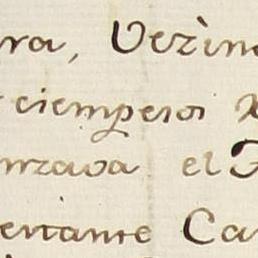 ra, Vezin
ciempesos
nzava el
ertante Ca